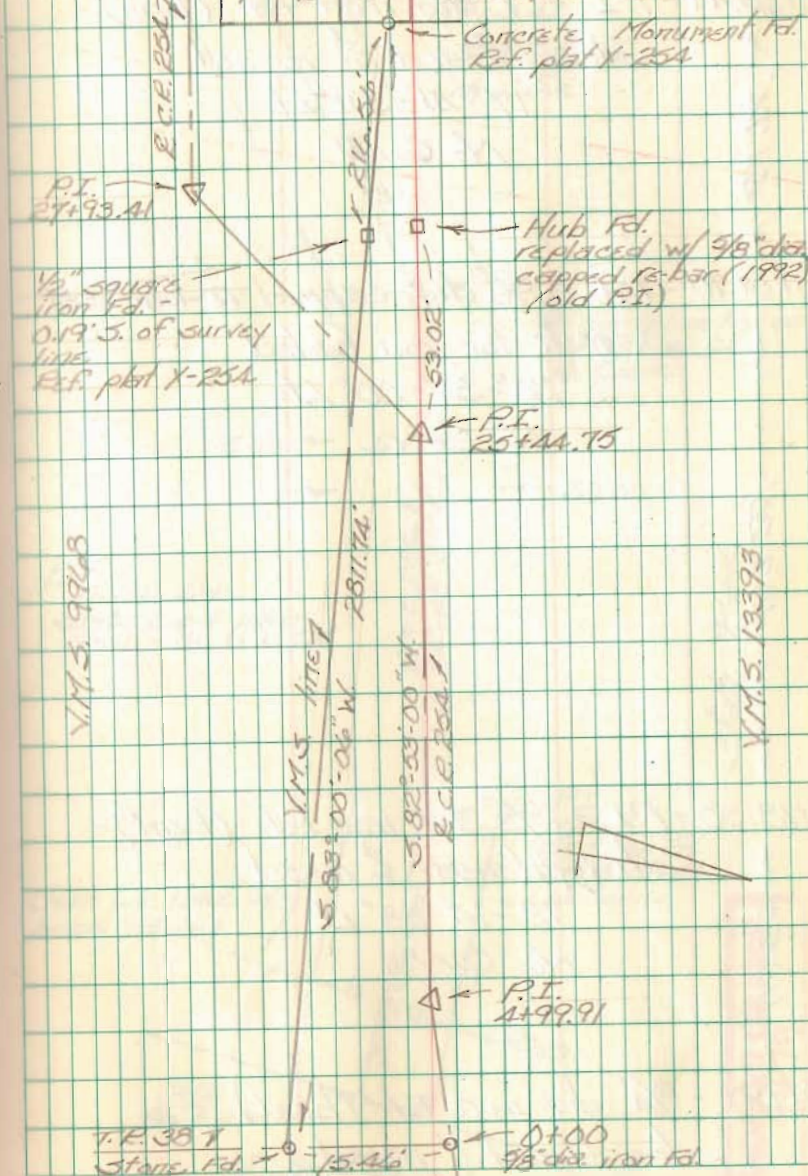 Concrete Monument Fd.
Ref. plat X-25A
& C.R. 25A
216.56'
P.I.
27+93.41
Hub Fd.
replaced w/ 5/8" dia.
capped re-bar (1992)
(old P.I.)
1/2" square
iron Fd. -
0.19' S. of survey
line
Ref. plat X-25A
53.02'
P.I.
25+44.75
2811.74'
V.M.S. 9968
V.M.S. 13393
V.M.S. line
S.83°-00'-06" W.
S.82°-53'-00" W.
& C.R. 25A
P.I.
4+99.91
T.R. 38
Stone Fd.
15.46'
0+00
5/8" dia. iron Fd.